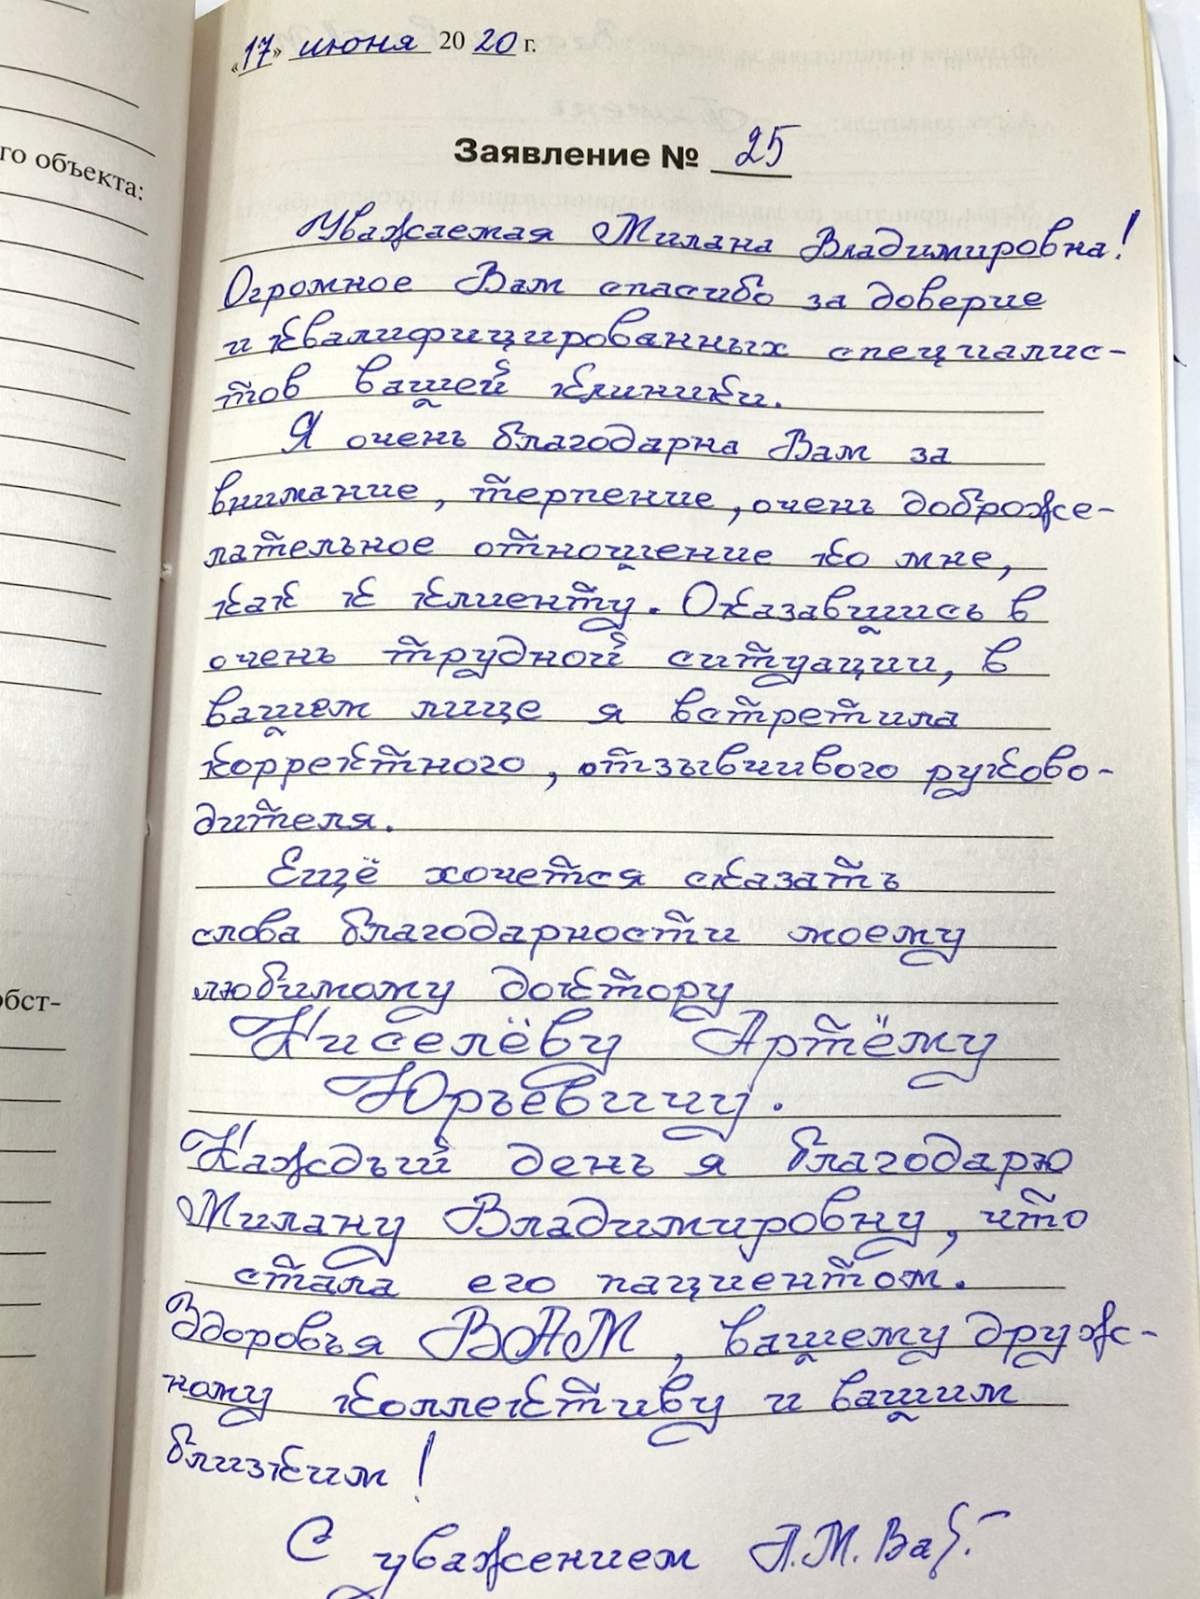 «17» июня 2020 г.
го объекта:
Заявление № 25
Уважаемая Милана Владимировна!
Огромное Вам спасибо за доверие
и квалифицированных специалис-
тов вашей клиники.
Я очень благодарна Вам за
внимание, терпение, очень доброже-
лательное отношение ко мне,
как к клиенту. Оказавшись в
очень трудной ситуации, в
вашем лице я встретила
корректного, отзывчивого руково-
дителя.
Ещё хочется сказать
слова благодарности моему
любимому доктору
обст-
Киселёву Артёму
Юрьевичу.
Каждый день я благодарю
Милану Владимировну, что
стала его пациентом.
Здоровья ВАМ, вашему друж-
ному коллективу и вашим
близким!
С уважением